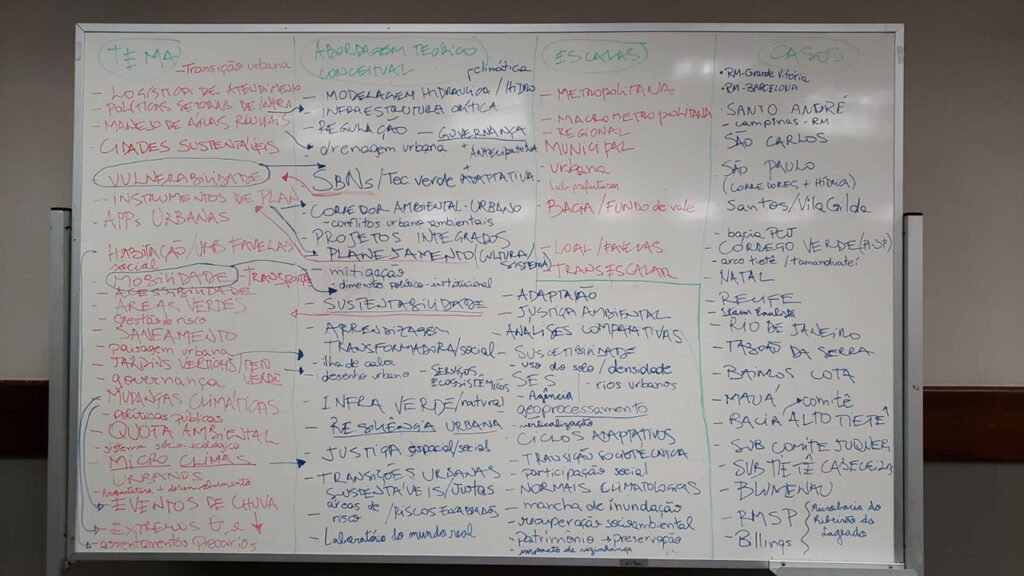 TEMA
- Transição urbana
- LOGÍSTICA DE ATENDIMENTO
- POLÍTICAS SETORIAIS DE INFRA
- MANEJO DE ÁGUAS PLUVIAIS
- CIDADES SUSTENTÁVEIS
VULNERABILIDADE
- INSTRUMENTOS DE PLAN
- APPs URBANAS
HABITAÇÃO/URB FAVELAS
social
- MOBILIDADE - TRANSPORTE
- ACESSIBILIDADE
- ÁREAS VERDES
- Gestão de risco
- SANEAMENTO
- paisagem urbana
- JARDINS VERTICAIS/TETO VERDE
- governança
- MUDANÇAS CLIMÁTICAS
- políticas públicas
- QUOTA AMBIENTAL
- sistema sócio-ecológico
- MICRO CLIMAS
URBANOS
- Arquitetura + desenvolvimento
- EVENTOS DE CHUVA
- EXTREMOS
- assentamentos precários
ABORDAGEM TEÓRICO
CONCEITUAL
climática
- MODELAGEM HIDRÁULICA/HIDRO
- INFRAESTRUTURA CRÍTICA
- REGULAÇÃO - GOVERNANÇA
- drenagem urbana + ANTECIPATÓRIA
+
- SBNs/Tec verde ADAPTATIVA
- CORREDOR AMBIENTAL-URBANO
- conflitos urbano ambientais
- PROJETOS INTEGRADOS
- PLANEJAMENTO (CULTURA/
SISTEMA)
- mitigação
- dimensão político-institucional
- SUSTENTABILIDADE
- APRENDIZAGEM
TRANSFORMADORA/social
- ilha de calor
- desenho urbano
- SERVIÇOS
ECOSSISTÊMICOS
- INFRA VERDE/natural
- RESILIÊNCIA URBANA
- JUSTIÇA espacial/social
- TRANSIÇÕES URBANAS
SUSTENTÁVEIS/JUSTAS
- áreas de
risco / RISCOS
- Laboratório do mundo real
- ADAPTAÇÃO
- JUSTIÇA AMBIENTAL
- ANÁLISES COMPARATIVAS
- SUSCETIBILIDADE
- uso do solo/densidade
- SES - rios urbanos
- Agência
- geoprocessamento
- verticalização
- CICLOS ADAPTATIVOS
- TRANSIÇÃO SOCIOTÉCNICA
- participação social
- NORMAIS CLIMATOLÓGICAS
- mancha de inundação
- recuperação socioambiental
- patrimônio → preservação
- impacto de vizinhança
ESCALAS
- METROPOLITANA
- MACROMETROPOLITANA
- REGIONAL
MUNICIPAL
- urbana
sub-prefeituras
- BACIA/FUNDO de vale
- LOCAL/FAVELAS
- TRANSESCALAR
CASOS
• RM-Grande Vitória
• RM-BARCELONA
- SANTO ANDRÉ
- campinas - RM
- SÃO CARLOS
- SÃO PAULO
(CORREDORES + HIDRIA)
- Santos/Vila Gilda
- bacia PCJ
- CÓRREGO VERDE
- arco tietê/tamanduateí
- NATAL
- RECIFE
- RIO DE JANEIRO
- TABOÃO DA SERRA
- BAIRROS COTA
- MAUÁ → comitê
- BACIA ALTO TIETÊ
- SUB COMITÊ JUQUERI
- SUB TIETÊ CABECEIRAS
- BLUMENAU
- RMSP
- Billings
Ribeirão do
Lageado